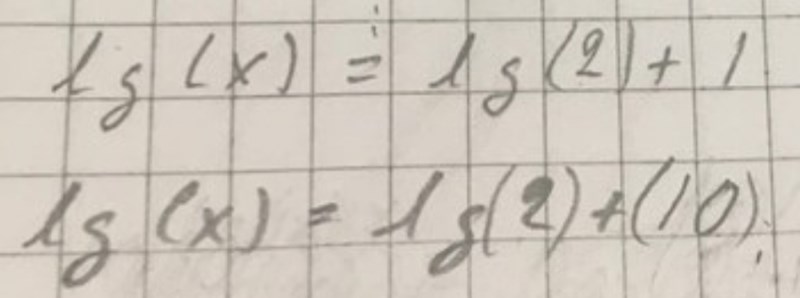 lg (x) = lg(2) + 1
lg (x) = lg(2) + (10)